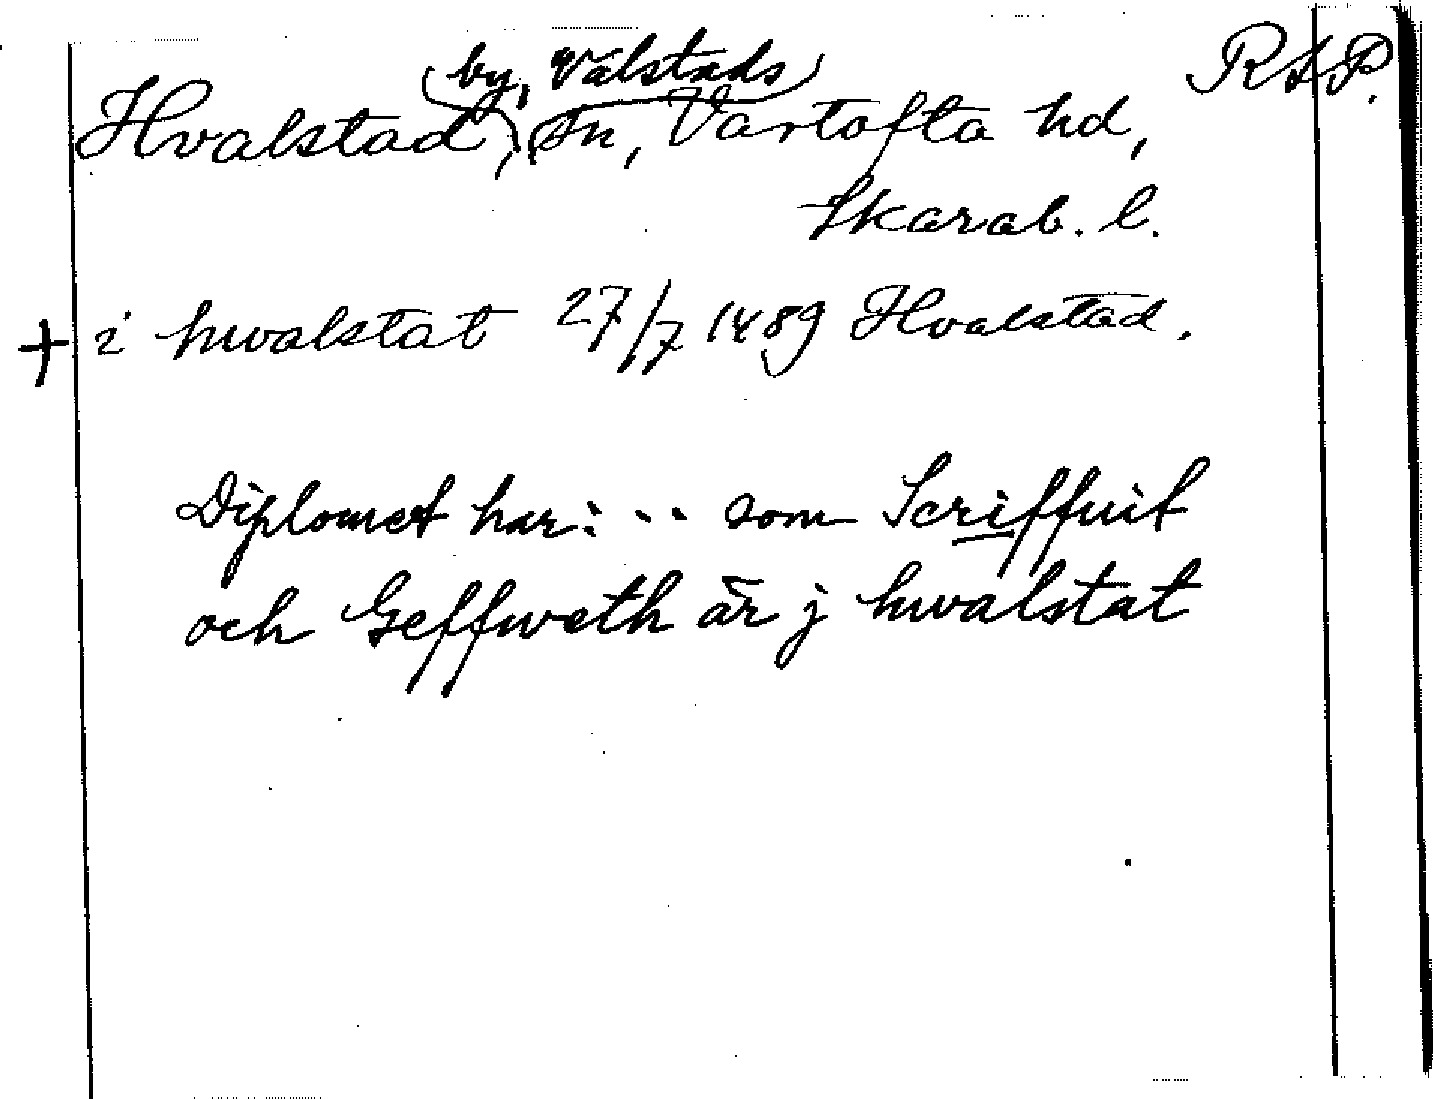 by, Valstads R A P.
Hvalstad, sn, Vartofta hd,
Skarab. l.
+ i hwalstat 27/7 1489 Hvalstad.
Diplomet har: .. som Scriffuit
och Geffweth är j hwalstat